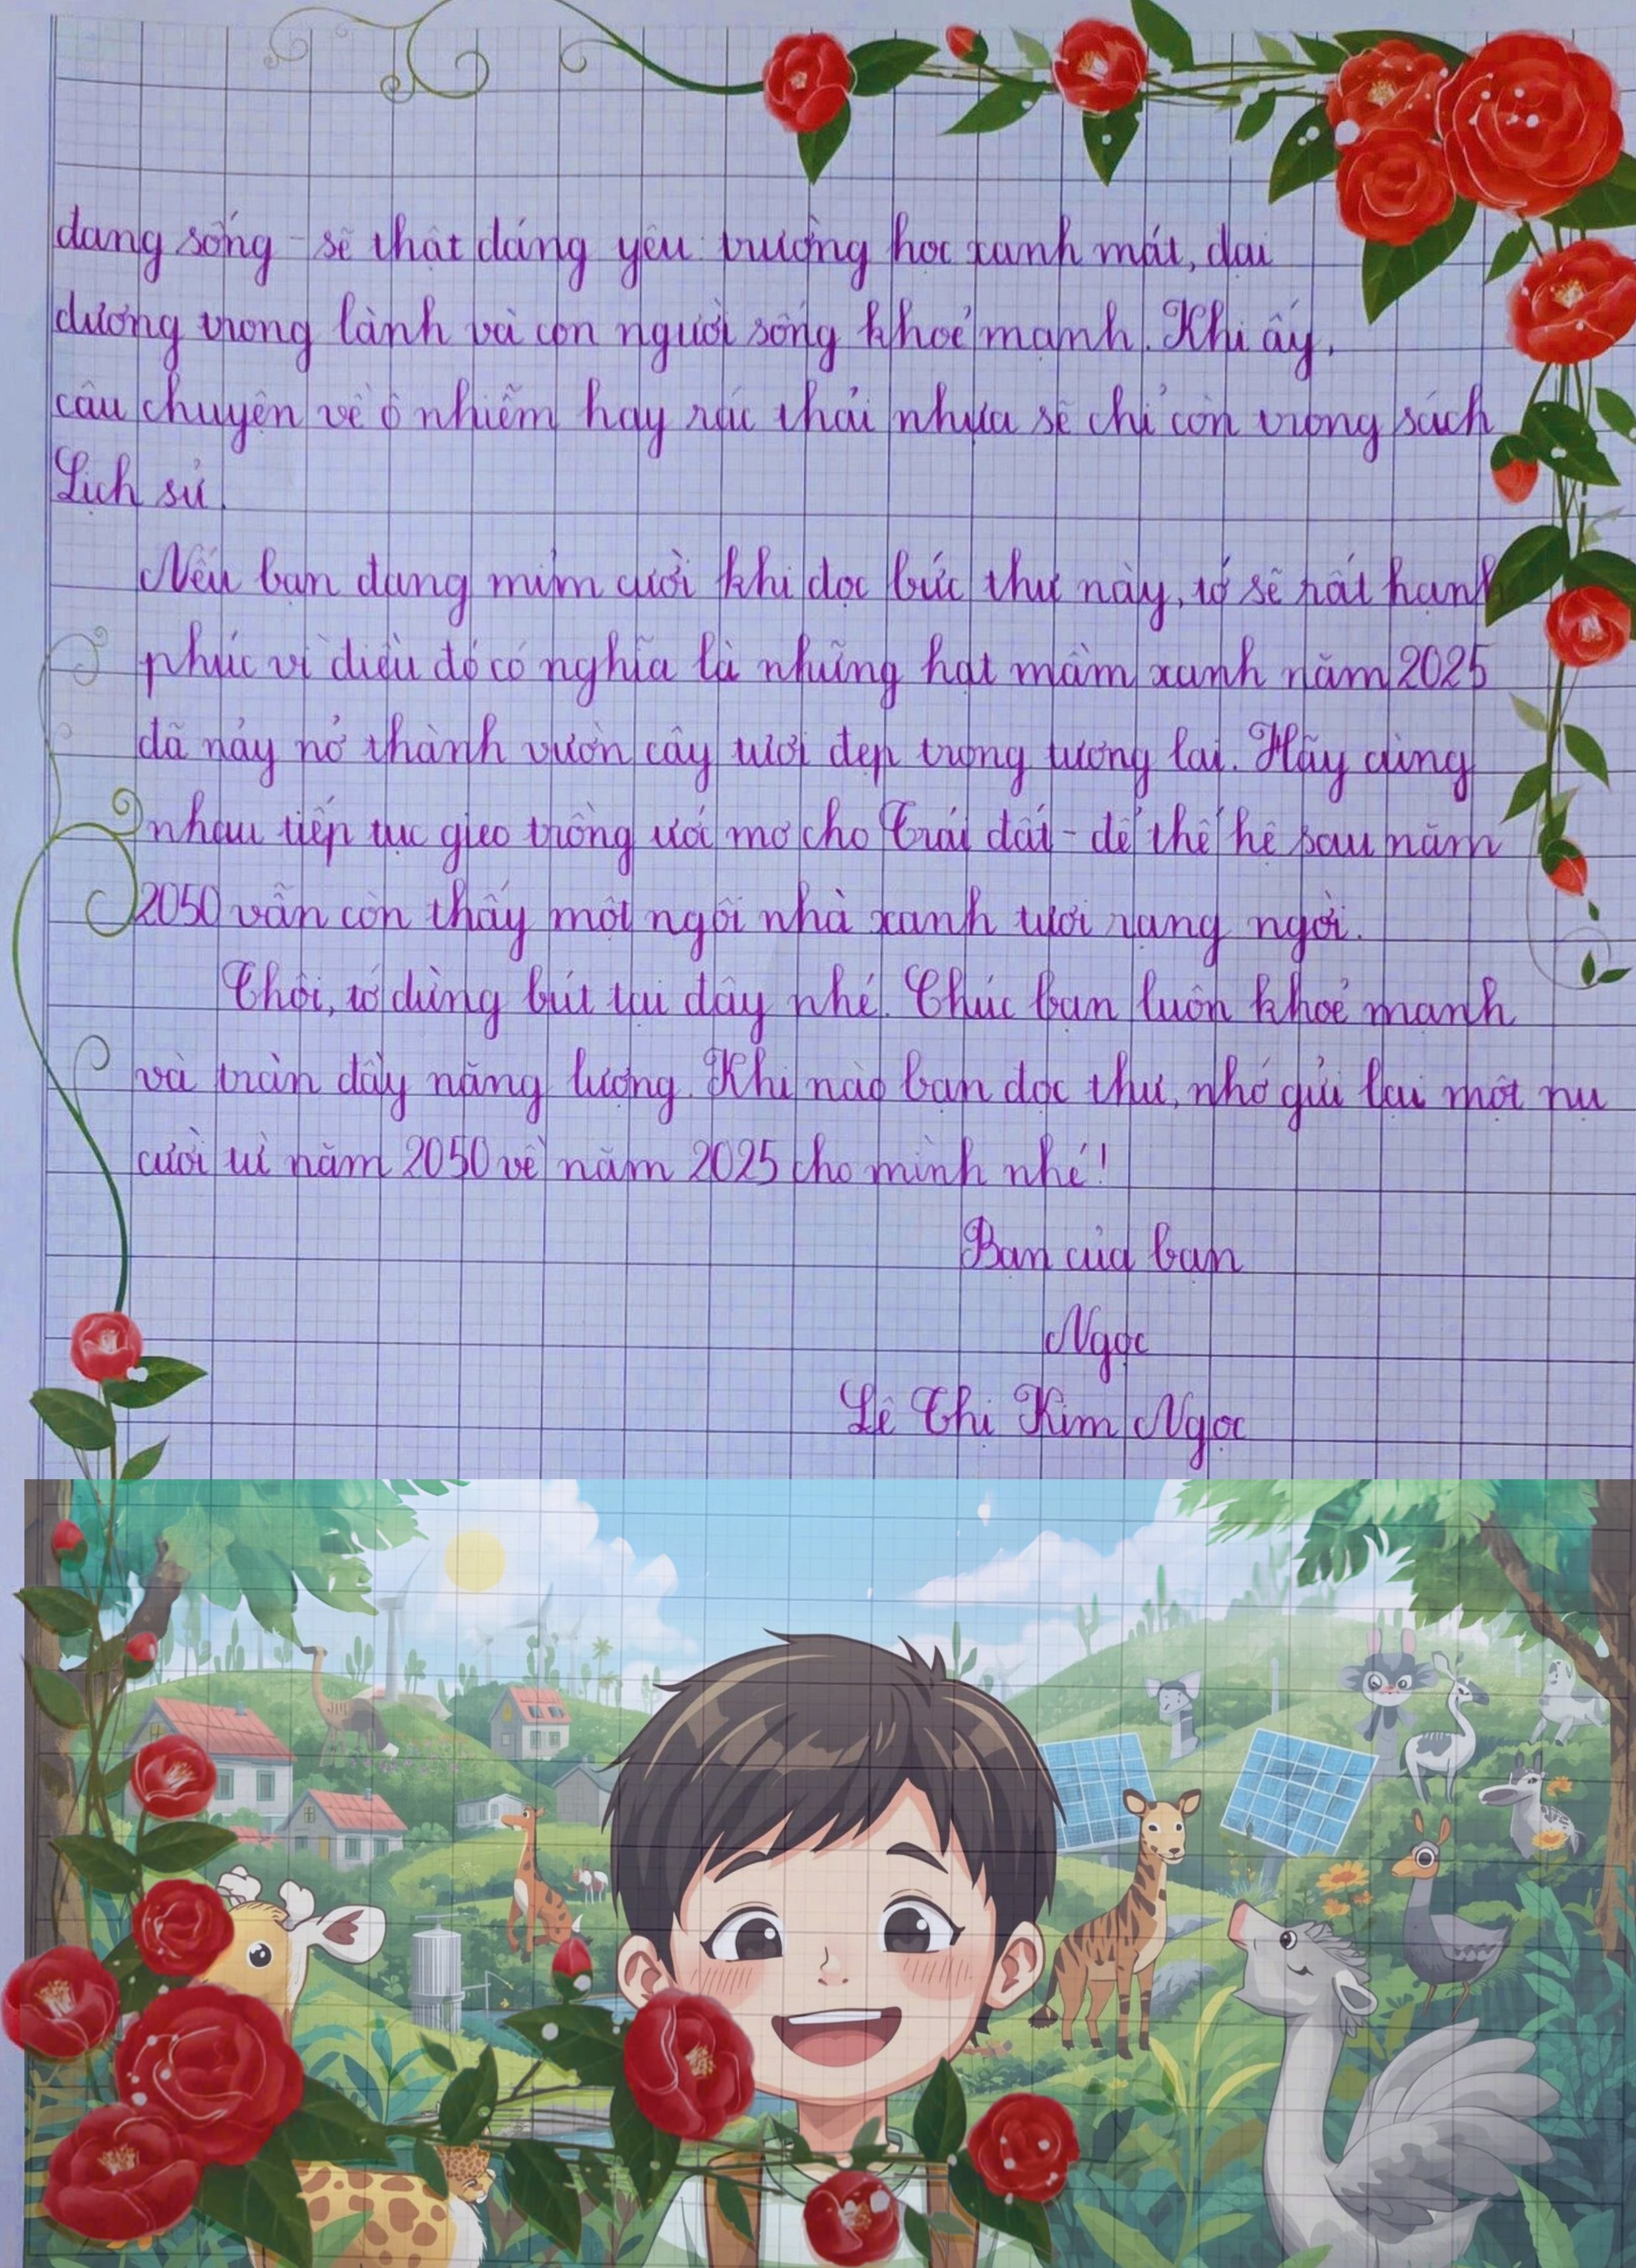 đang sống - sẽ thật đáng yêu: trường học xanh mát, đại
dương trong lành và con người sống khoẻ mạnh. Khi ấy,
câu chuyện về ô nhiễm hay rác thải nhựa sẽ chỉ còn trong sách
Lịch sử.
Nếu bạn đang mỉm cười khi đọc bức thư này, tớ sẽ rất hạnh
phúc vì điều đó có nghĩa là những hạt mầm xanh năm 2025
đã nảy nở thành vườn cây tươi đẹp trong tương lai. Hãy cùng
nhau tiếp tục gieo trồng ước mơ cho Trái đất - để thế hệ sau năm
2050 vẫn còn thấy một ngôi nhà xanh tươi rạng ngời.
Thôi, tớ dừng bút tại đây nhé. Chúc bạn luôn khoẻ mạnh
và tràn đầy năng lượng. Khi nào bạn đọc thư, nhớ gửi lại một nụ
cười từ năm 2050 về năm 2025 cho mình nhé!
Bạn của bạn
Ngọc
Lê Thị Kim Ngọc